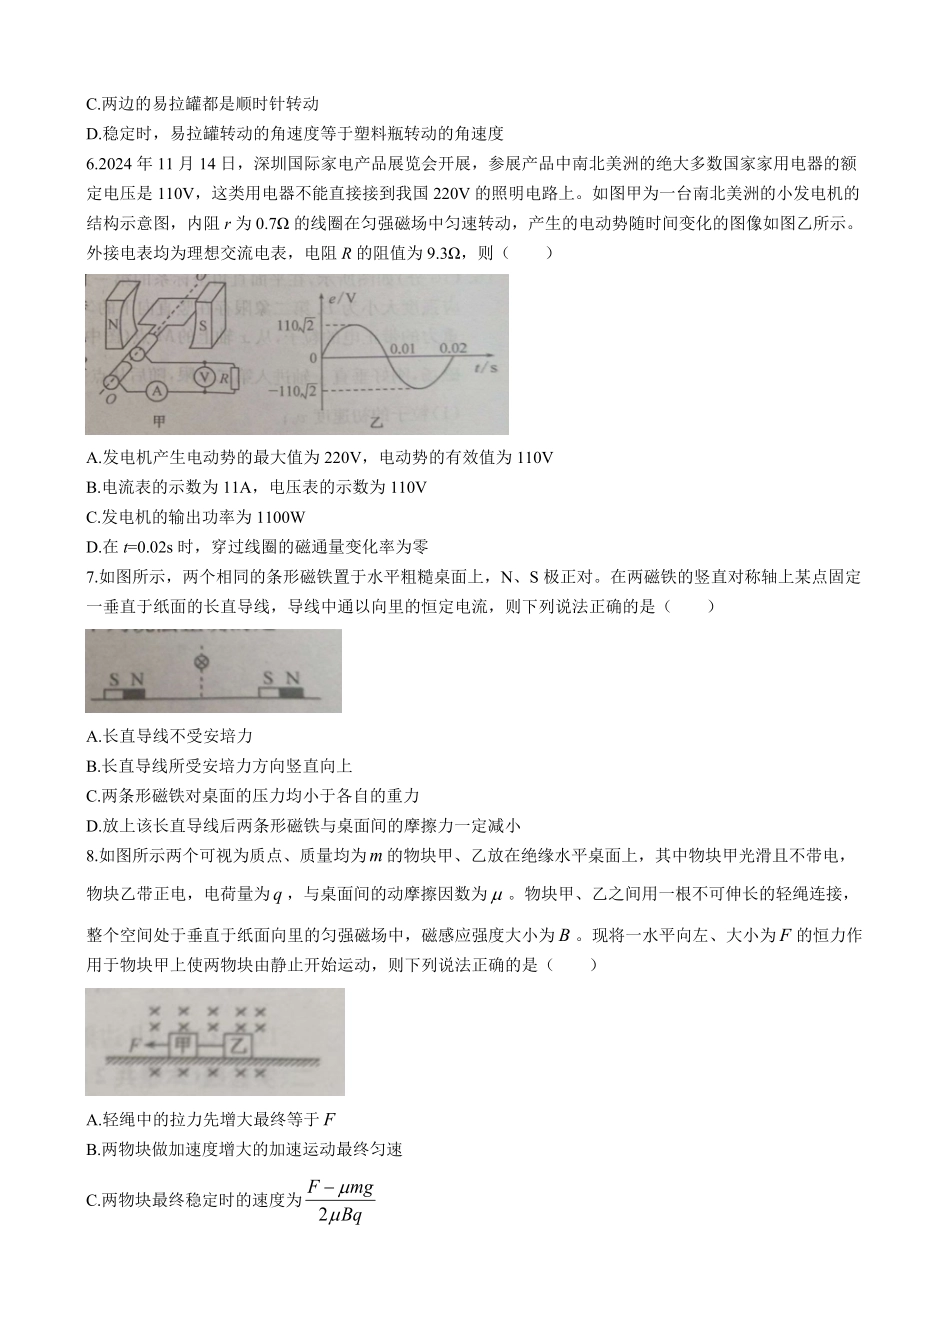 C.两边的易拉罐都是顺时针转动
D.稳定时，易拉罐转动的角速度等于塑料瓶转动的角速度
6.2024 年 11 月 14 日，深圳国际家电产品展览会开展，参展产品中南北美洲的绝大多数国家家用电器的额
定电压是 110V，这类用电器不能直接接到我国 220V 的照明电路上。如图甲为一台南北美洲的小发电机的
结构示意图，内阻 r 为 0.7Ω 的线圈在匀强磁场中匀速转动，产生的电动势随时间变化的图像如图乙所示。
外接电表均为理想交流电表，电阻 R 的阻值为 9.3Ω，则（　　）
N S O A V R O′ 甲
e/V 110√2 0 0.01 0.02 t/s −110√2 乙
A.发电机产生电动势的最大值为 220V，电动势的有效值为 110V
B.电流表的示数为 11A，电压表的示数为 110V
C.发电机的输出功率为 1100W
D.在 t=0.02s 时，穿过线圈的磁通量变化率为零
7.如图所示，两个相同的条形磁铁置于水平粗糙桌面上，N、S 极正对。在两磁铁的竖直对称轴上某点固定
一垂直于纸面的长直导线，导线中通以向里的恒定电流，则下列说法正确的是（　　）
S N S N
A.长直导线不受安培力
B.长直导线所受安培力方向竖直向上
C.两条形磁铁对桌面的压力均小于各自的重力
D.放上该长直导线后两条形磁铁与桌面间的摩擦力一定减小
8.如图所示两个可视为质点、质量均为 m 的物块甲、乙放在绝缘水平桌面上，其中物块甲光滑且不带电，
物块乙带正电，电荷量为 q ，与桌面间的动摩擦因数为 μ 。物块甲、乙之间用一根不可伸长的轻绳连接，
整个空间处于垂直于纸面向里的匀强磁场中，磁感应强度大小为 B 。现将一水平向左、大小为 F 的恒力作
用于物块甲上使两物块由静止开始运动，则下列说法正确的是（　　）
F 甲 乙
A.轻绳中的拉力先增大最终等于 F
B.两物块做加速度增大的加速运动最终匀速
C.两物块最终稳定时的速度为 (F − μmg)/(2μBq)